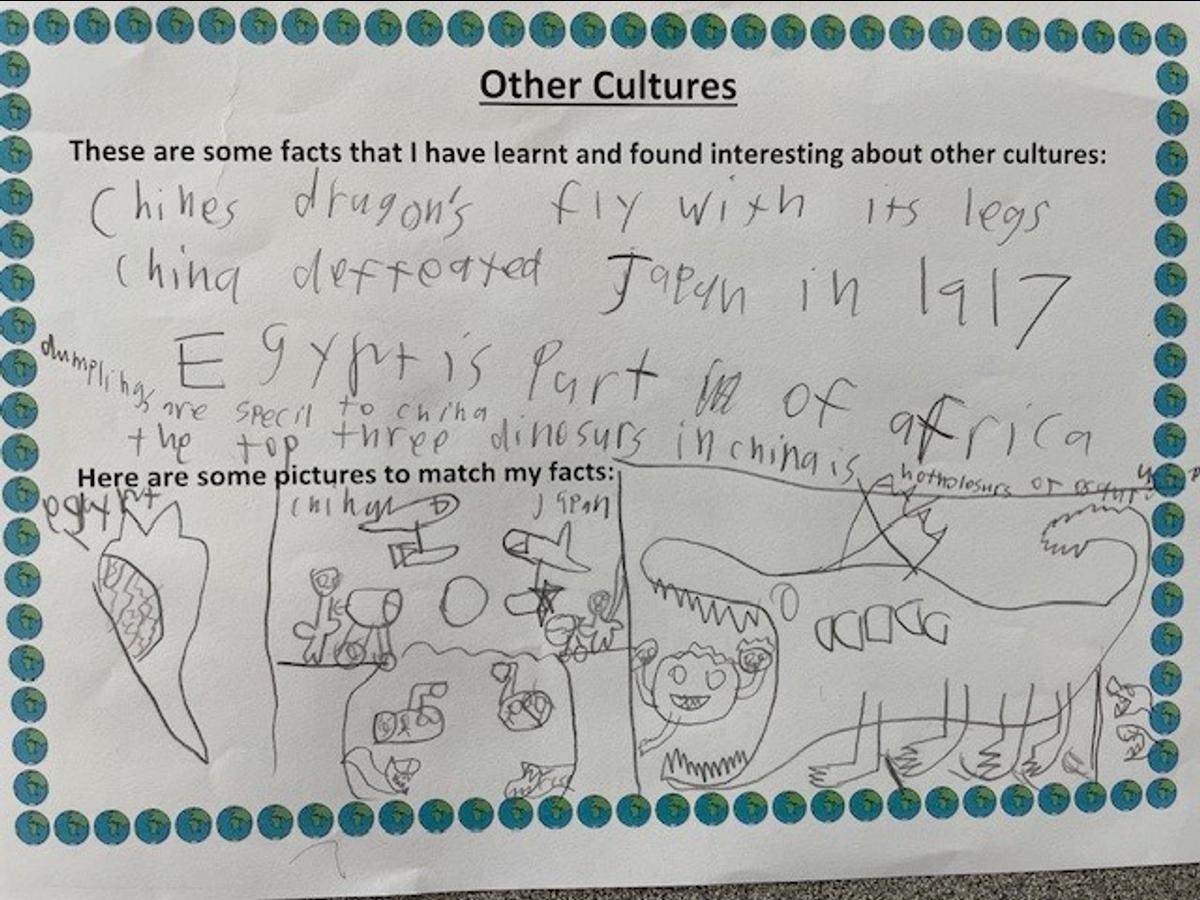 Other Cultures
These are some facts that I have learnt and found interesting about other cultures:
Chines dragon's fly with its legs
china deffeated Japan in 1917
Egypt is Part of africa
dumplings are specil to china
the top three dinosurs in china is
Here are some pictures to match my facts:
egypt
chihan
Japan